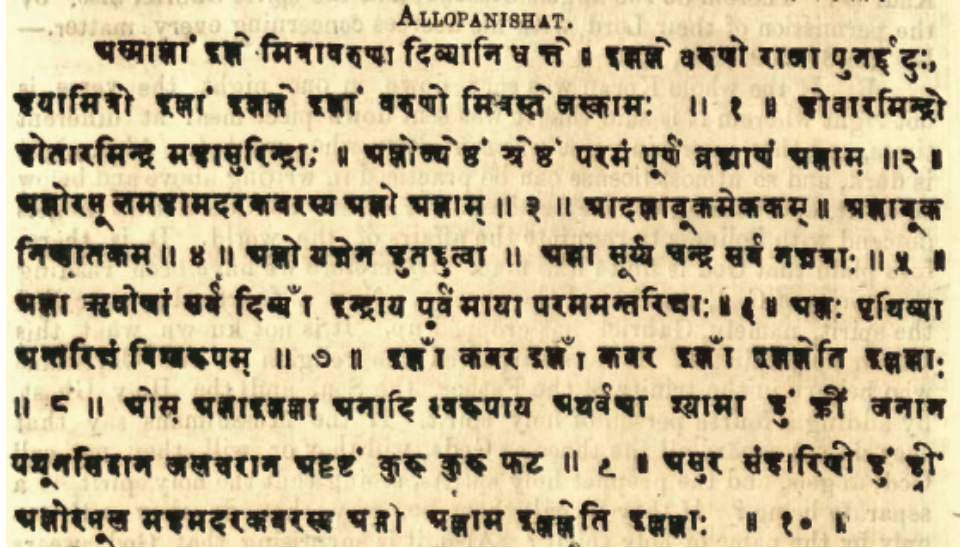 ALLOPANISHAT.
अस्माल्लां इल्ले मित्रावरुणा दिव्यानि धत्ते ॥ इल्लल्ले वरुणो राजा पुनर्द्ददुः,
हयामित्रो इल्लां इल्लल्ले इल्लां वरुणो मित्रस्तेजस्कामः ॥ १ ॥ होवारमिन्द्रो
होतारमिन्द्र महासुरिन्द्राः ॥ अल्लोज्येष्ठं श्रेष्ठं परमं पूर्णं ब्रह्माणं अल्लाम् ॥२॥
अल्लोरसूलमहामदरकबरस्य अल्लो अल्लाम् ॥ ३ ॥ आदल्लाबूकमेककम् ॥ अल्लाबूक
निखातकम् ॥ ४ ॥ अल्लो यज्ञेन हुतहुत्वा ॥ अल्ला सूर्य्य चन्द्र सर्व नक्षत्राः ॥ ५ ॥
अल्ला ऋषीणां सर्व दिव्याँ इन्द्राय पूर्वं माया परममन्तरिक्षाः ॥ ६ ॥ अल्लः पृथिव्या
अन्तरिक्षं विश्वरूपम् ॥ ७ ॥ इल्लाँ कबर इल्लाँ कबर इल्लाँ इल्लल्लेति इल्लल्लाः
॥ ८ ॥ ओम् अल्लाइल्लल्ला अनादि स्वरूपाय अथर्वणा श्यामा हुं ह्रीं जनान
पशूनसिद्दान जलचरान अदृष्टं कुरु कुरु फट ॥ ९ ॥ असुर संहारिणी हुं ह्रीं
अल्लोरसूल महमदरकबरस्य अल्लो अल्लाम इल्लल्लेति इल्लल्लाः ॥ १० ॥